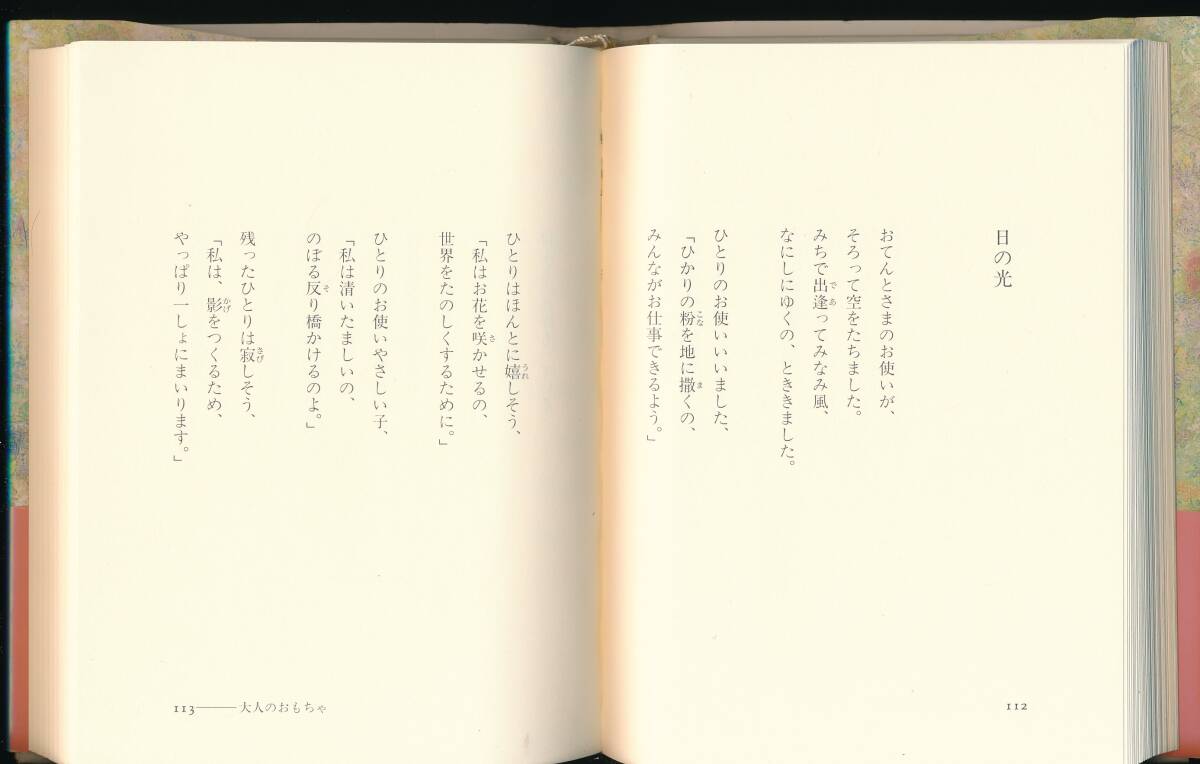 日の光
おてんとさまのお使いが、
そろって空をたちました。
みちで出逢ってみなみ風、
なにしにゆくの、とききました。
ひとりのお使いいいました、
「ひかりの粉を地に撒くの、
みんながお仕事できるよう。」
112
ひとりはほんとに嬉しそう、
「私はお花を咲かせるの、
世界をたのしくするために。」
ひとりのお使いやさしい子、
「私は清いたましいの、
のぼる反り橋かけるのよ。」
残ったひとりは寂しそう、
「私は、影をつくるため、
やっぱり一しょにまいります。」
113――大人のおもちゃ